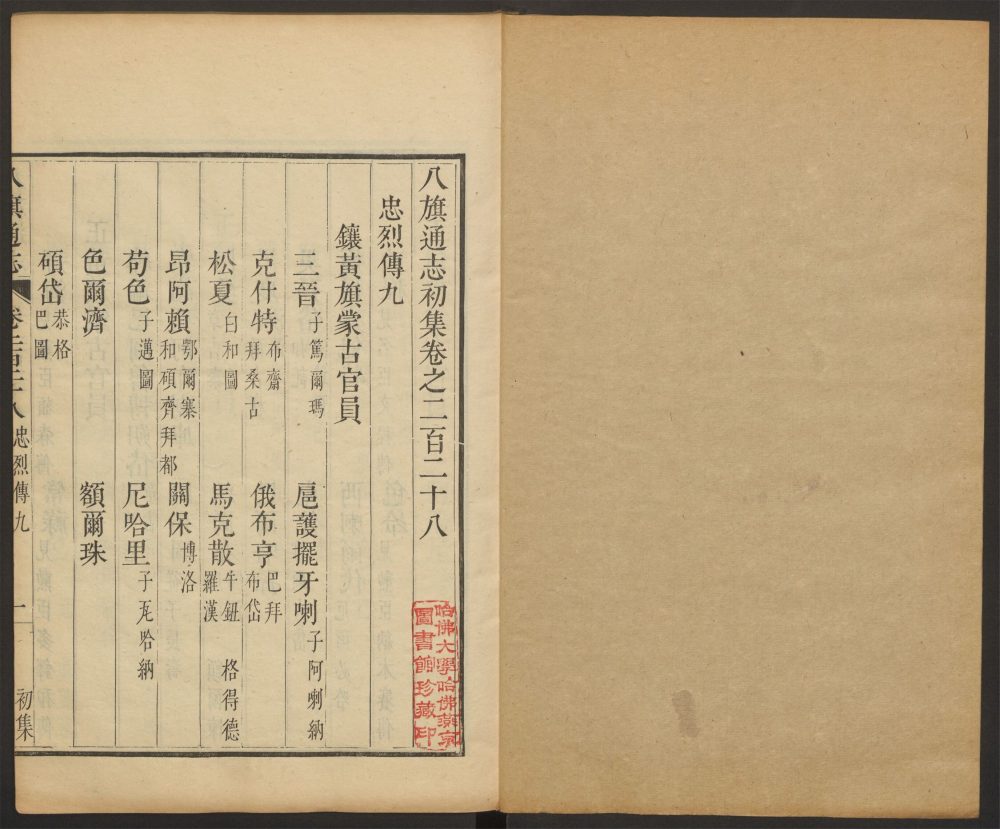 八旗通志初集卷之二百二十八
哈佛大學哈佛燕京
圖書館珍藏印
忠烈傳九
鑲黃旗蒙古官員
三晉 子篤爾瑪 扈護擺牙喇 子阿喇納
克什特 布齋 拜桑古 俄布亨 巴拜 布岱
松夏 白和圖 馬克散 牛鈕 羅漢 格得德
昂阿賴 鄂爾寨 和碩齊拜都 關保 博洛
苟色 子邁圖 尼哈里 子尨哈納
色爾濟 額爾珠
碩岱 恭格 巴圖
八旗通志 忠烈傳九 一 初集